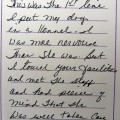 This was the 1st time
I put my dogs
in a Kennel. I
was more nervous
than she was. But
I toured your facilities
and met the staff
and had peace of
mind that she
was well taken care